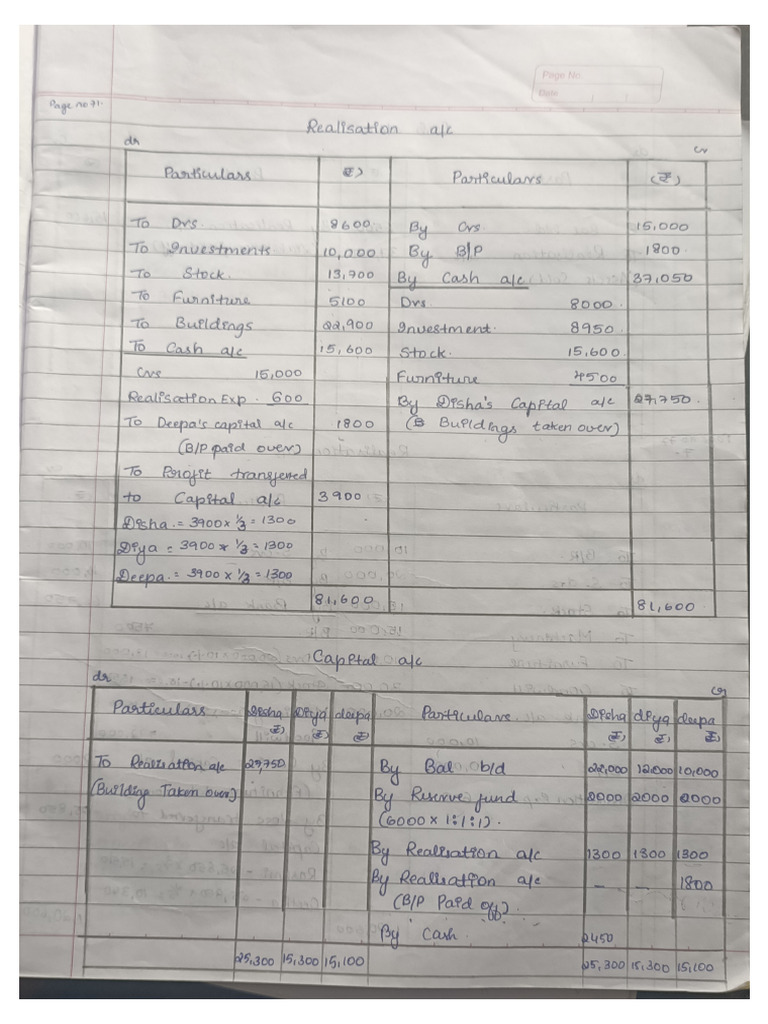 Page No.
Date
Page no 71.
Realisation a/c
dr cr
Particulars (₹) Particulars (₹)
To Drs 8600 By Crs 15,000
To Investments 10,000 By B/P 1800
To Stock 13,700 By Cash a/c 37,050
To Furniture 5100 Drs. 8000
To Buildings 22,900 Investment. 8950
To Cash a/c 15,600 Stock. 15,600
Crs 15,000 Furniture 4500
Realisation Exp. 600 By Disha's Capital a/c 27,750
To Deepa's capital a/c 1800 (Buildings taken over)
(B/P paid over)
To Profit transferred
to Capital a/c 3900
Disha = 3900 x 1/3 = 1300
Diya = 3900 x 1/3 = 1300
Deepa = 3900 x 1/3 = 1300
81,600 81,600
Capital a/c
dr cr
Particulars Disha (₹) Diya (₹) deepa (₹) Particulars Disha (₹) diya (₹) deepa (₹)
To Realisation a/c 27,750 By Bal b/d 22,000 12,000 10,000
(Building Taken over) By Reserve fund 2000 2000 2000
(6000 x 1:1:1).
By Realisation a/c 1300 1300 1300
By Realisation a/c - - 1800
(B/P Paid off).
By Cash 2450
25,300 15,300 15,100 25,300 15,300 15,100